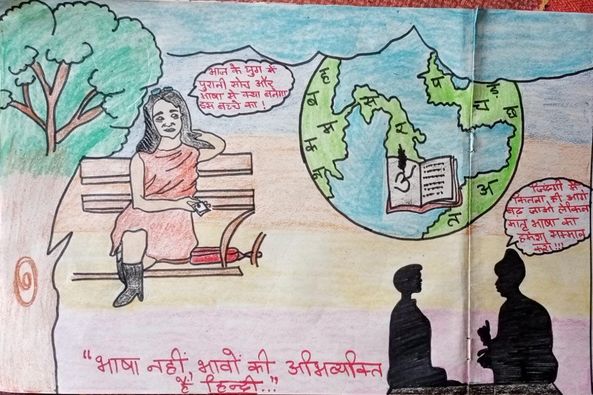 आज के युग में
पुरानी सोच और
भाषा से क्या बनेगा
इस बच्चे का !
ह
ब
क
म
स
स
र
प
ड़
छ
ॐ
त
अ
ज़िंदगी में
कितना ही आगे
बढ़ जाओ लेकिन
मातृ भाषा का
हमेशा सम्मान
करो !!!
"भाषा नहीं, भावों की अभिव्यक्ति
है, हिन्दी..."